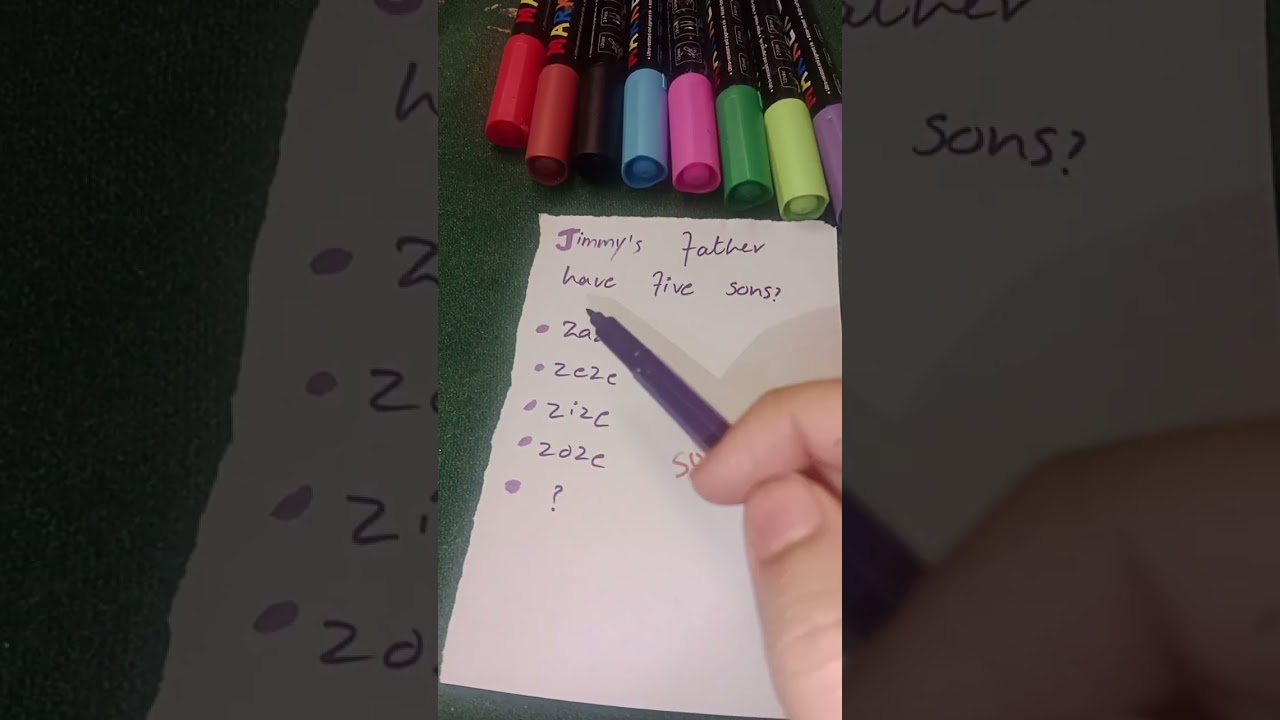 Jimmy's Father
have Five sons?
• 
• zeze
• zize
• zoze
• ?